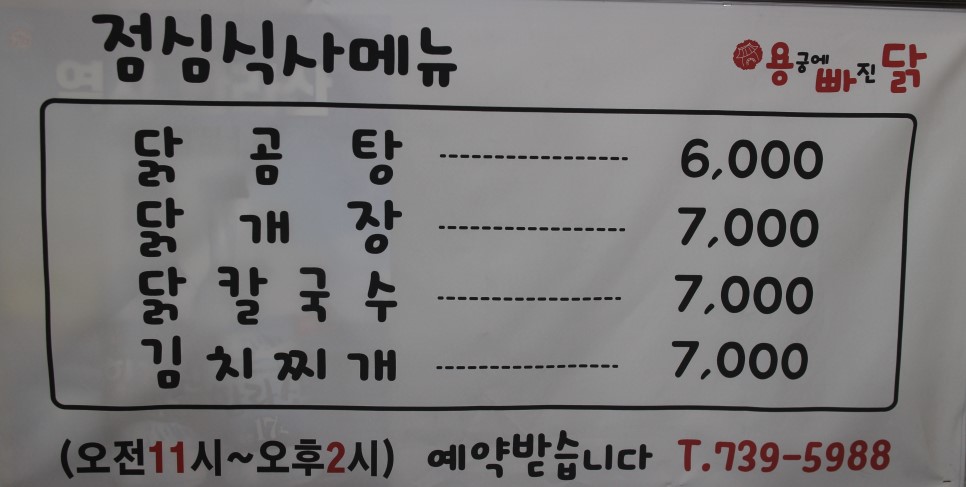 점심식사메뉴
용궁에빠진닭
닭곰탕 ---------- 6,000
닭개장 ---------- 7,000
닭칼국수 ---------- 7,000
김치찌개 ---------- 7,000
(오전11시~오후2시) 예약받습니다 T.739-5988